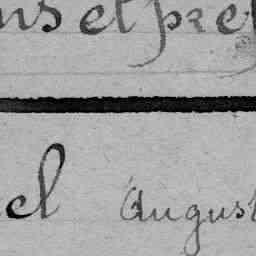 ns et pré
el August